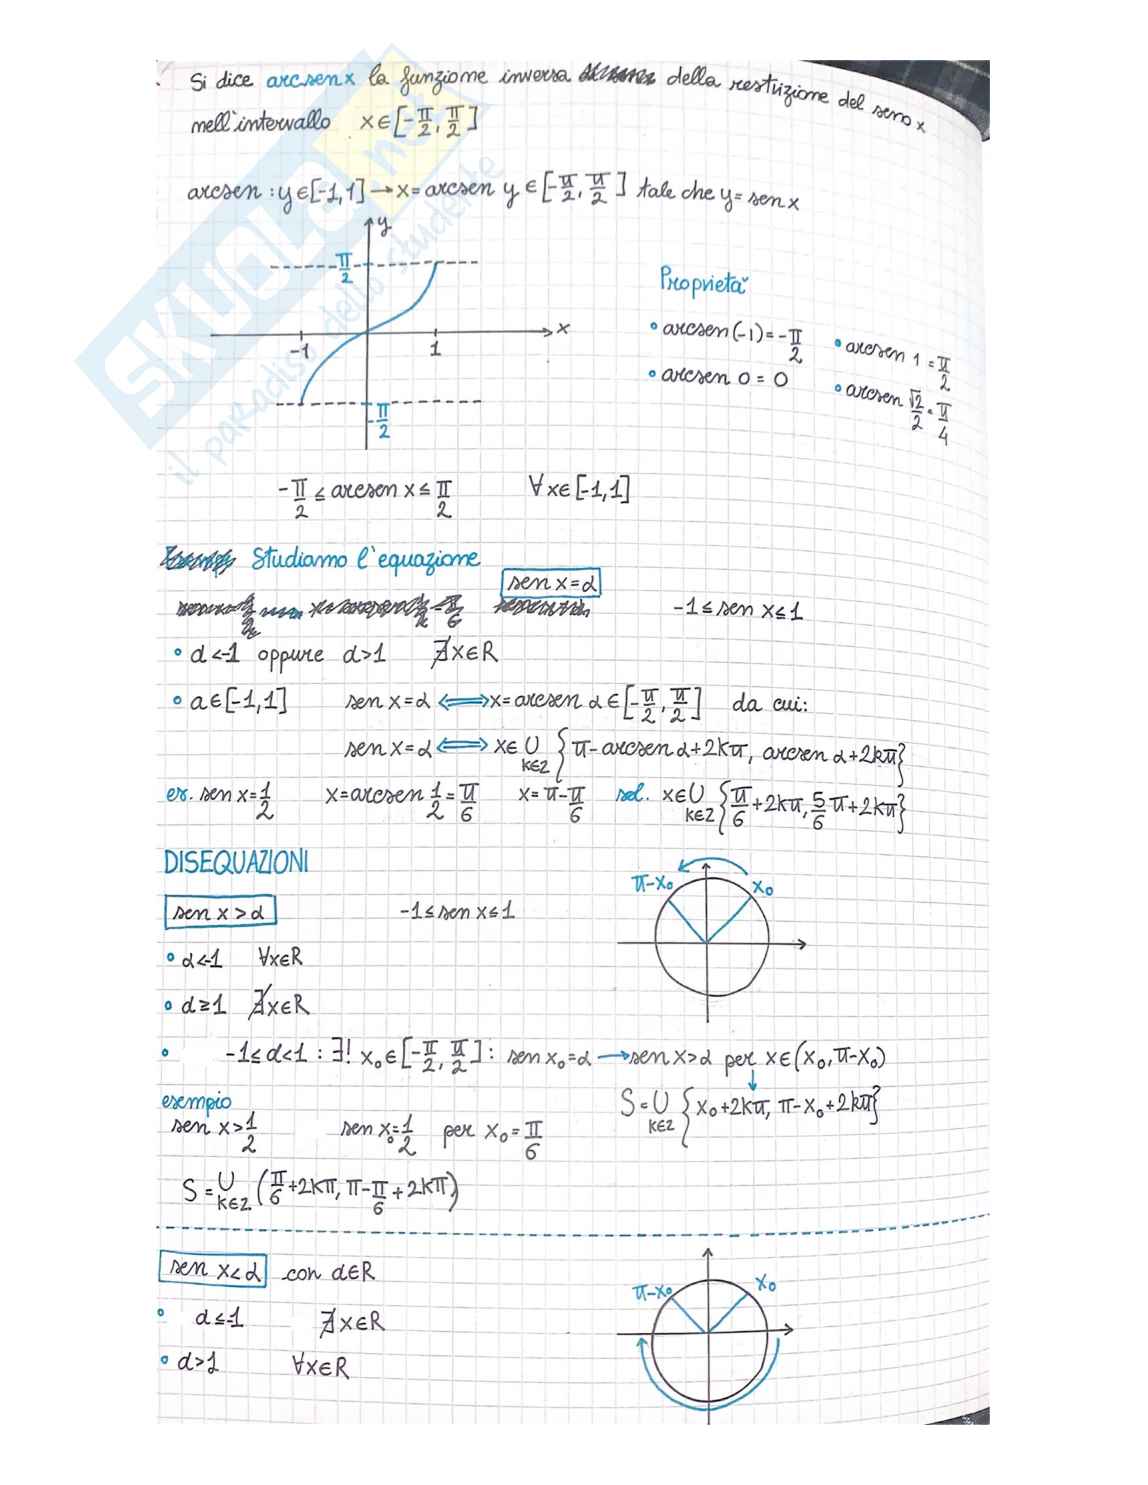 Si dice arcsen x la funzione inversa della restrizione del seno x
nell'intervallo x∈[-π/2, π/2]
arcsen : y∈[-1,1] → x = arcsen y ∈ [-π/2, π/2] tale che y = sen x
y
π/2
x
-1
1
-π/2
Proprietà
• arcsen(-1) = -π/2
• arcsen 1 = π/2
• arcsen 0 = 0
• arcsen √2/2 = π/4
-π/2 ≤ arcsen x ≤ π/2 ∀x∈[-1,1]
Studiamo l'equazione
sen x = α
-1 ≤ sen x ≤ 1
• α<-1 oppure α>1 ∄x∈R
• a∈[-1,1] sen x = α ⟺ x = arcsen α ∈ [-π/2, π/2] da cui:
sen x = α ⟺ x∈ ∪ k∈Z {π - arcsen α + 2kπ, arcsen α + 2kπ}
es. sen x = 1/2 x = arcsen 1/2 = π/6 x = π - π/6 sol. x∈ ∪ k∈Z {π/6 + 2kπ, 5/6 π + 2kπ}
DISEQUAZIONI
π-x₀
x₀
sen x > α
-1 ≤ sen x ≤ 1
• α<-1 ∀x∈R
• α≥1 ∄x∈R
• -1≤α<1 : ∃! x₀∈[-π/2, π/2] : sen x₀ = α → sen x > α per x∈(x₀, π-x₀)
S = ∪ k∈Z {x₀ + 2kπ, π - x₀ + 2kπ}
esempio
sen x > 1/2 sen x₀ = 1/2 per x₀ = π/6
S = ∪ k∈Z (π/6 + 2kπ, π - π/6 + 2kπ)
sen x < α con α∈R
π-x₀
x₀
• α≤-1 ∄x∈R
• α>1 ∀x∈R
SKUOLA.net
il paradiso dello studente